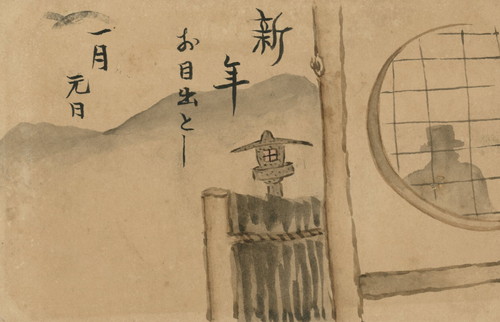 新年
お目出とし
一月
元日